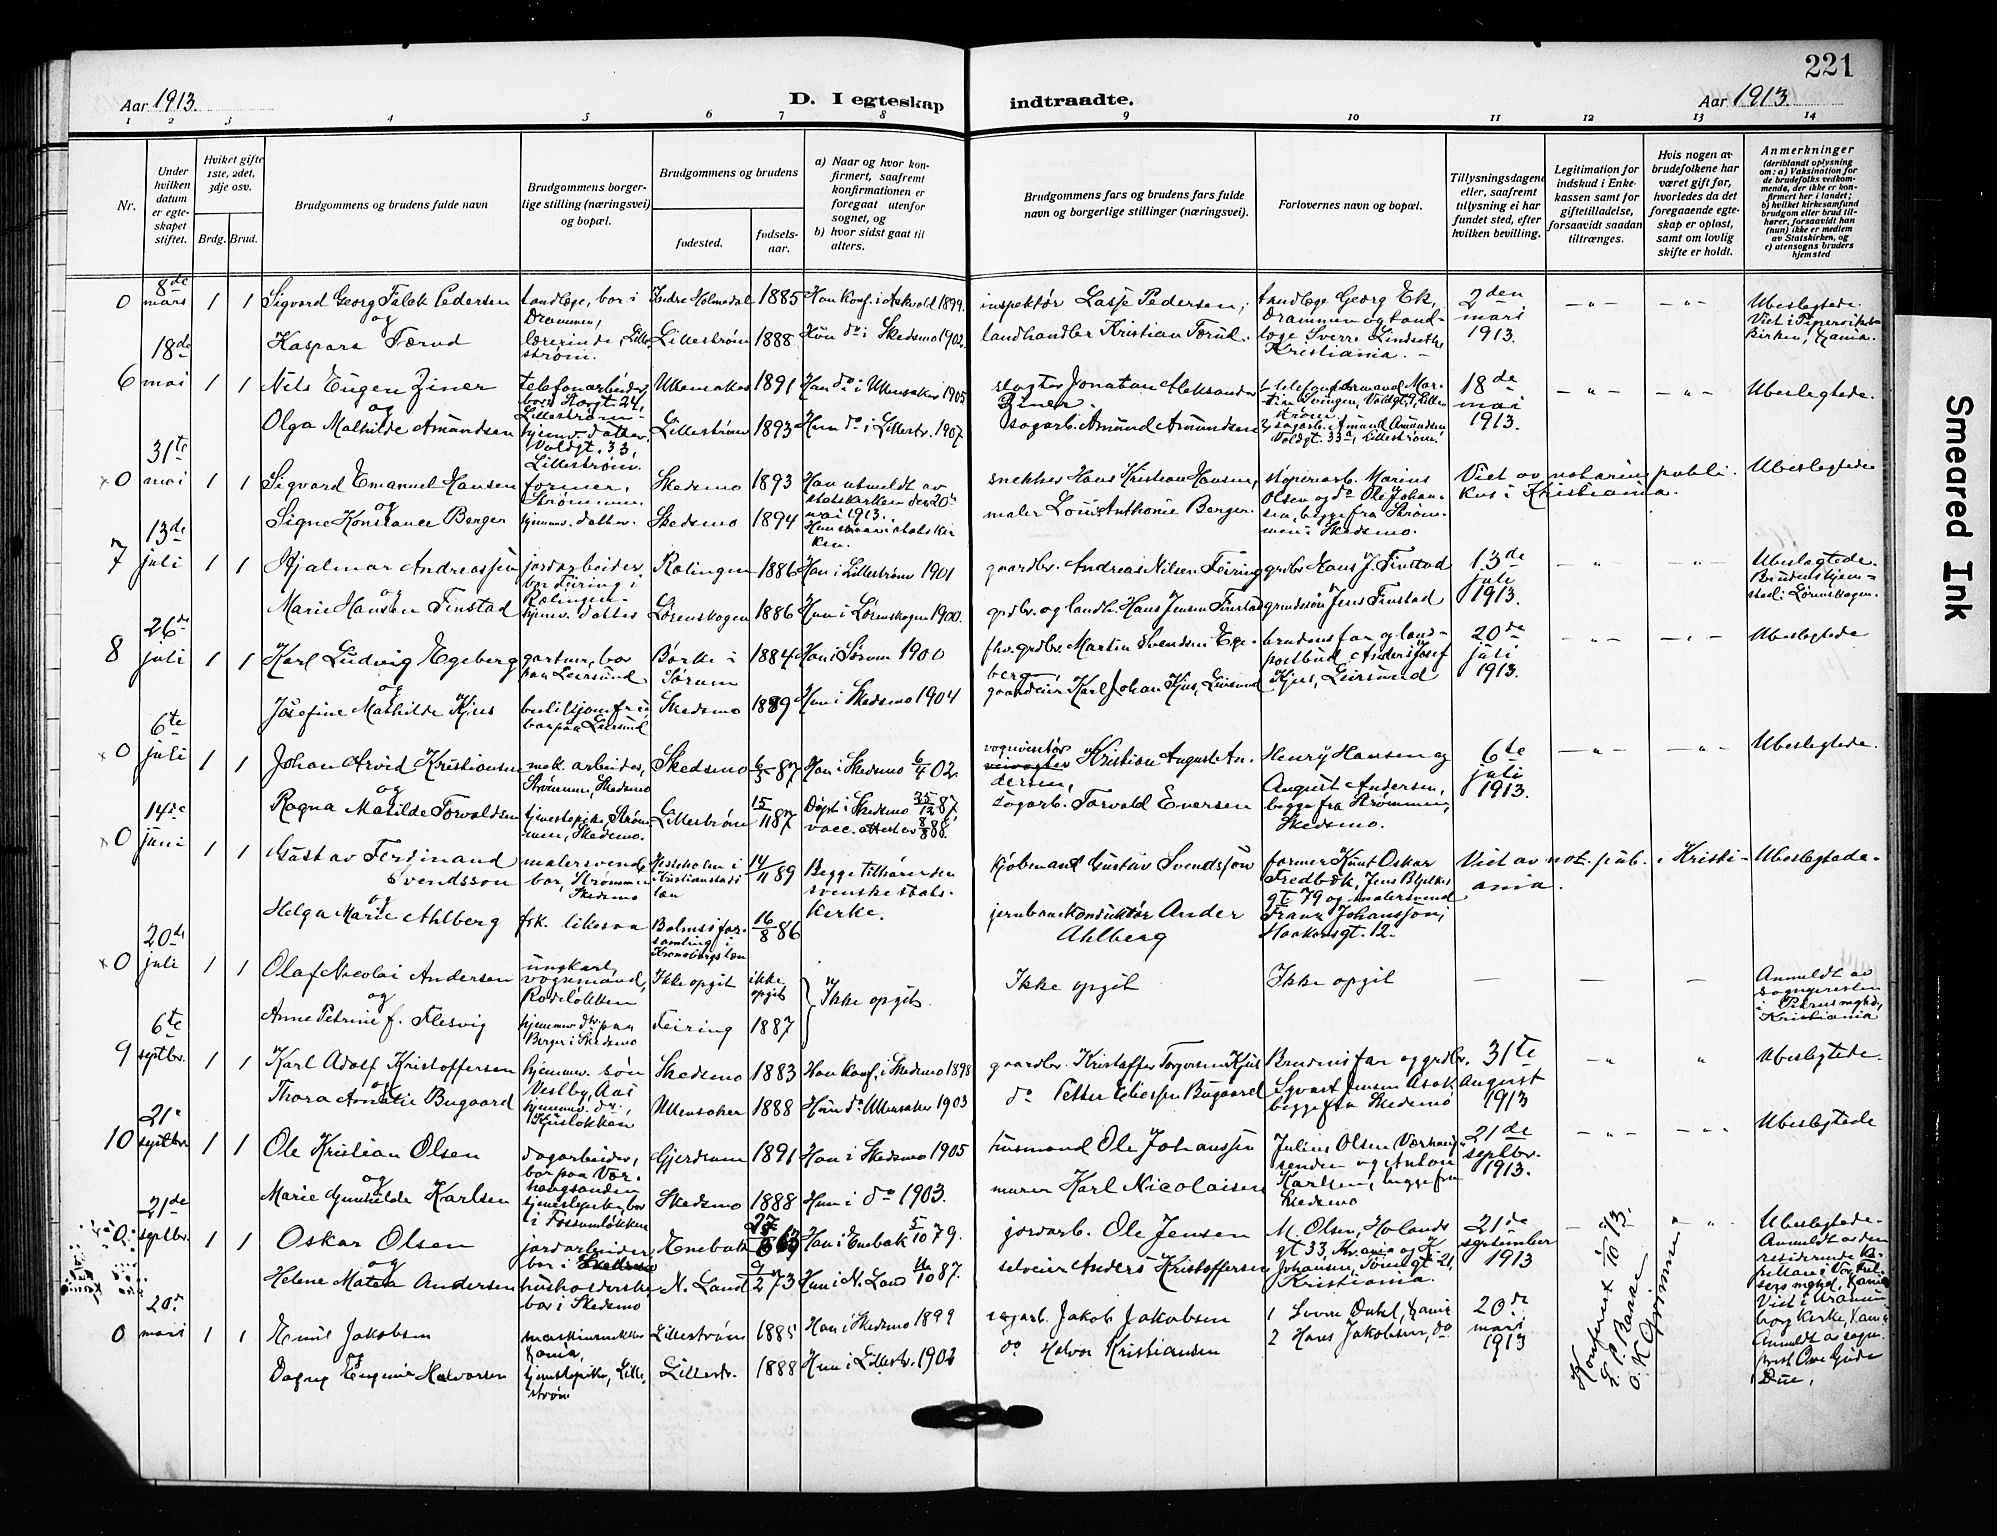 221
Aar 1913.
D. I egteskap
indtraadte.
Aar 1913.
1 2 3 4 5 6 7 8 9 10 11 12 13 14
Nr.
Under hvilken datum er egteskapet stiftet.
Hviket gifte 1ste, 2det, 3dje osv.
Brdg. Brud.
Brudgommens og brudens fulde navn
Brudgommens borgerlige stilling (næringsvei) og bopæl.
Brudgommens og brudens
fødested.
fødselsaar.
a) Naar og hvor konfirmert, saafremt konfirmationen er foregaat utenfor sognet, og
b) hvor sidst gaat til alters.
Brudgommens fars og brudens fars fulde navn og borgerlige stillinger (næringsvei).
Forlovernes navn og bopæl.
Tillysningsdagene eller, saafremt tillysning ei har fundet sted, efter hvilken bevilling.
Legitimation for indskud i Enkekassen samt for giftetilladelse, forsaavidt saadan tiltrænges.
Hvis nogen av brudefolkene har været gift før, hvorledes da det foregaaende egteskap er opløst, samt om lovlig skifte er holdt.
Anmerkninger
(deriblandt oplysning om: a) Vaksination for de brudefolks vedkommende, der ikke er konfirmert her i landet;
b) hvilket kirkesamfund brudgom eller brud tilhører, forsaavidt han (hun) ikke er medlem av Statskirken, og
c) utensogns bruders hjemsted
0 8de mars 1 1 Sigvard Georg Falck Pedersen tandlæge, bor i Drammen, Indre Holmedal 1885 Han konf. i Askvold 1899. inspektør Lasse Pedersen, tandlæge Georg Ek, Drammen og tandlæge Sverre Lindseth, Kristiania. 2den mars 1913. Ubeslegtede. Viet i Piperviksbirken, Kania.
og
Kaspara Tærud lærerinde, Lillestrøm. Lillestrøm 1888 Hun do i Skedsmo 1902. landhandler Kristian Tærud.
6 18de mai 1 1 Nils Eugen Ziner telefonarbeider, bor Storgt. 24, Lillestrøm. Ullensaker 1891 Han do i Ullensaker 1905 slagter Jonatan Aleksander Ziner. 18de mai 1913. Ubeslegtede.
og
Olga Mathilde Amundsen hjemv. datter, Voldgt. 33, Lillestrøm. Lillestrøm 1893 Hun do i Lillestr. 1907. sagarb. Amund Amundsen 2 sagarb. Amund Amundsen Voldgt. 33a, Lillestrøm.
x0 31te mai 1 1 Sigvard Emanuel Hansen former, Strømmen. Skedsmo 1893 Han utmeldt av statskirken den 20de mai 1913. snekker Hans Kristian Hansen, støperiarb. Marius Olsen og do Ole Johansen, begge fra Strømmen i Skedsmo. Viet av notarius publikus i Kristiania. Ubeslegtede
og
Signe Konstance Berger hjemmv. datter. Skedsmo 1894 Hun staar i statskirken. maler Louis Anthonie Berger.
7 13de juli 1 1 Hjalmar Andreassen jordarbeider bor Feiring i Rælingen. Rælingen 1886 Han i Lillestrøm 1901 gaardbr. Andreas Nilsen Feiring grdbr. Hans J. Finstad 13de juli 1913. Ubeslegtede. Brudens hjemsted: Lørenskogen.
og
Marie Hansen Finstad hjemv. datter Lørenskogen 1886 Hun i Lørenskogen 1900. grdbr. og landh. Hans Jensen Finstad gaardssøn Jens Finstad
8 26de juli 1 1 Karl Ludvig Egeberg gartner, bor paa Leirsund Børke i Sørum 1884 Han i Sørum 1900 fhv. grdbr. Martin Svendsen Egeberg brudens far og landpostbud Anders Josef Kjus, Leirsund 20de juli 1913. Ubeslegtede
og
Josefine Mathilde Kjus butikjomfru bor paa Leirsund Skedsmo 1889 Hun i Skedsmo 1904 gaardeier Karl Johan Kjus, Leirsund
x0 6te juli 1 1 Johan Arvid Kristiansen mek. arbeider, Strømmen, Skedsmo Skedsmo 6/3 87 Han i Skedsmo 6/4 02. vognvisitør Kristian August Andersen, Henry Hansen og August Andersen, begge fra Strømmen, Skedsmo. 6te juli 1913. Ubeslegtede.
og
Ragna Matilde Torvaldsen tjenestepike, Strømmen, Skedsmo. Lillestrøm 15/11 87 Døpt i Skedsmo 25/12 87, vacc. attest av 8/8 88. sagarb. Torvald Eversen
x0 14de juni 1 1 Gustav Ferdinand Svendsson malersvend, bor, Strømmen Skedsmo 14/11 89 Begge tilhører den svenske statskirke. kjøbmand Gustav Svendsson former Knut Oskar Fredbæk, Jens Bjelkes gt. 79 og malersvend Franz Johansson, Haakonsgt. 12. Viet av not. pub. i Kristiania. Ubeslegtede.
og
Helga Marie Ahlberg frk. likesaa Bolmsøforsamling i Kronobergs læn 16/8 86 jernbanekonduktør Ander Ahlberg
x0 20de juli 1 1 Olaf Nicolai Andersen ungkarl, vognmand, Rodeløkken Ikke opgit ikke opgit Ikke opgit. Ikke opgit Ikke opgit Anmeldt av sognepresten i Petrus mghd, Kristiania
og
Anne Petrine f. Flesvig hjemmv. dtr. paa Berger i Skedsmo Feiring 1887
9 6te septbr. 1 1 Karl Adolf Kristoffersen hjemmv. søn Vestby, Aas Skedsmo 1883 Han konf. i Skedsmo 1898 gaardbr. Kristoffer Torgersen Kjus Brudens far og grdbr. Syvert Jensen Asak begge fra Skedsmo 31te August 1913 Ubeslegtede.
og
Thora Amalie Bugaard hjemmv. dtr., Kjusløkken Ullensaker 1888 Hun do Ullensaker 1903 do Petter Eliassen Bugaard
10 21de septbr 1 1 Ole Kristian Olsen dagarbeider, bor paa Værhaugsanden Gjerdrum 1891 Han i Skedsmo 1905 husmand Ole Johanssen Julius Olsen Værhaugsenden og Anton Karlsen, begge fra Skedsmo 21de septbr. 1913. Ubeslegtede
og
Marie Gunhilde Karlsen tjenestepike, bor i Fossumløkken Skedsmo 1888 Hun i do 1903. murer Karl Nicolaisen
0 21de septbr. 1 1 Oskar Olsen jordarbeider bor i Skedsmo Enebak Han i Enebak 5/10 79. jordarb. Ole Jensen M. Olsen, Holands gt 33, Kr.ania og K. Johansen, Tøiengt. 21, Kristiania. 21de september 1913 Ubeslegtede.
og
Helene Matea Andersen husholderske bor i Skedsmo N. Land 9/2 73 Hun i N. Land 16/10 87. selveier Anders Kristoffersen
0 20de mars 1 1 Emil Jakobsen Kania, Lillestrøm 1885 Han i Skedsmo 1899 sagarb. Jakob Jakobsen 2 Hans Jakobsen, do 20de mars 1913
og
Dagny Eugenie Halvorsen tjenestepike, Lillestrøm Lillestr. 1888 Hun i Lillestr. 1902 do Halvor Kristiansen
Konferert 10/10 13.
Smeared Ink